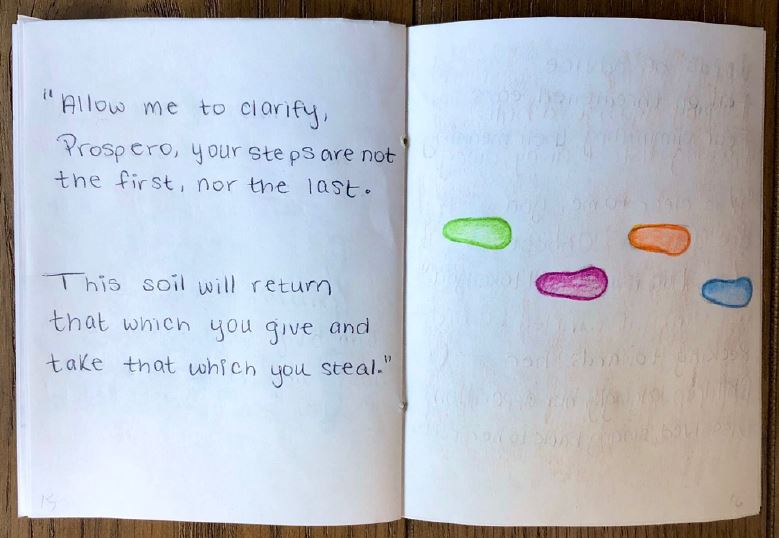 "Allow me to clarify,
Prospero, your steps are not
the first, nor the last.
This soil will return
that which you give and
take that which you steal."